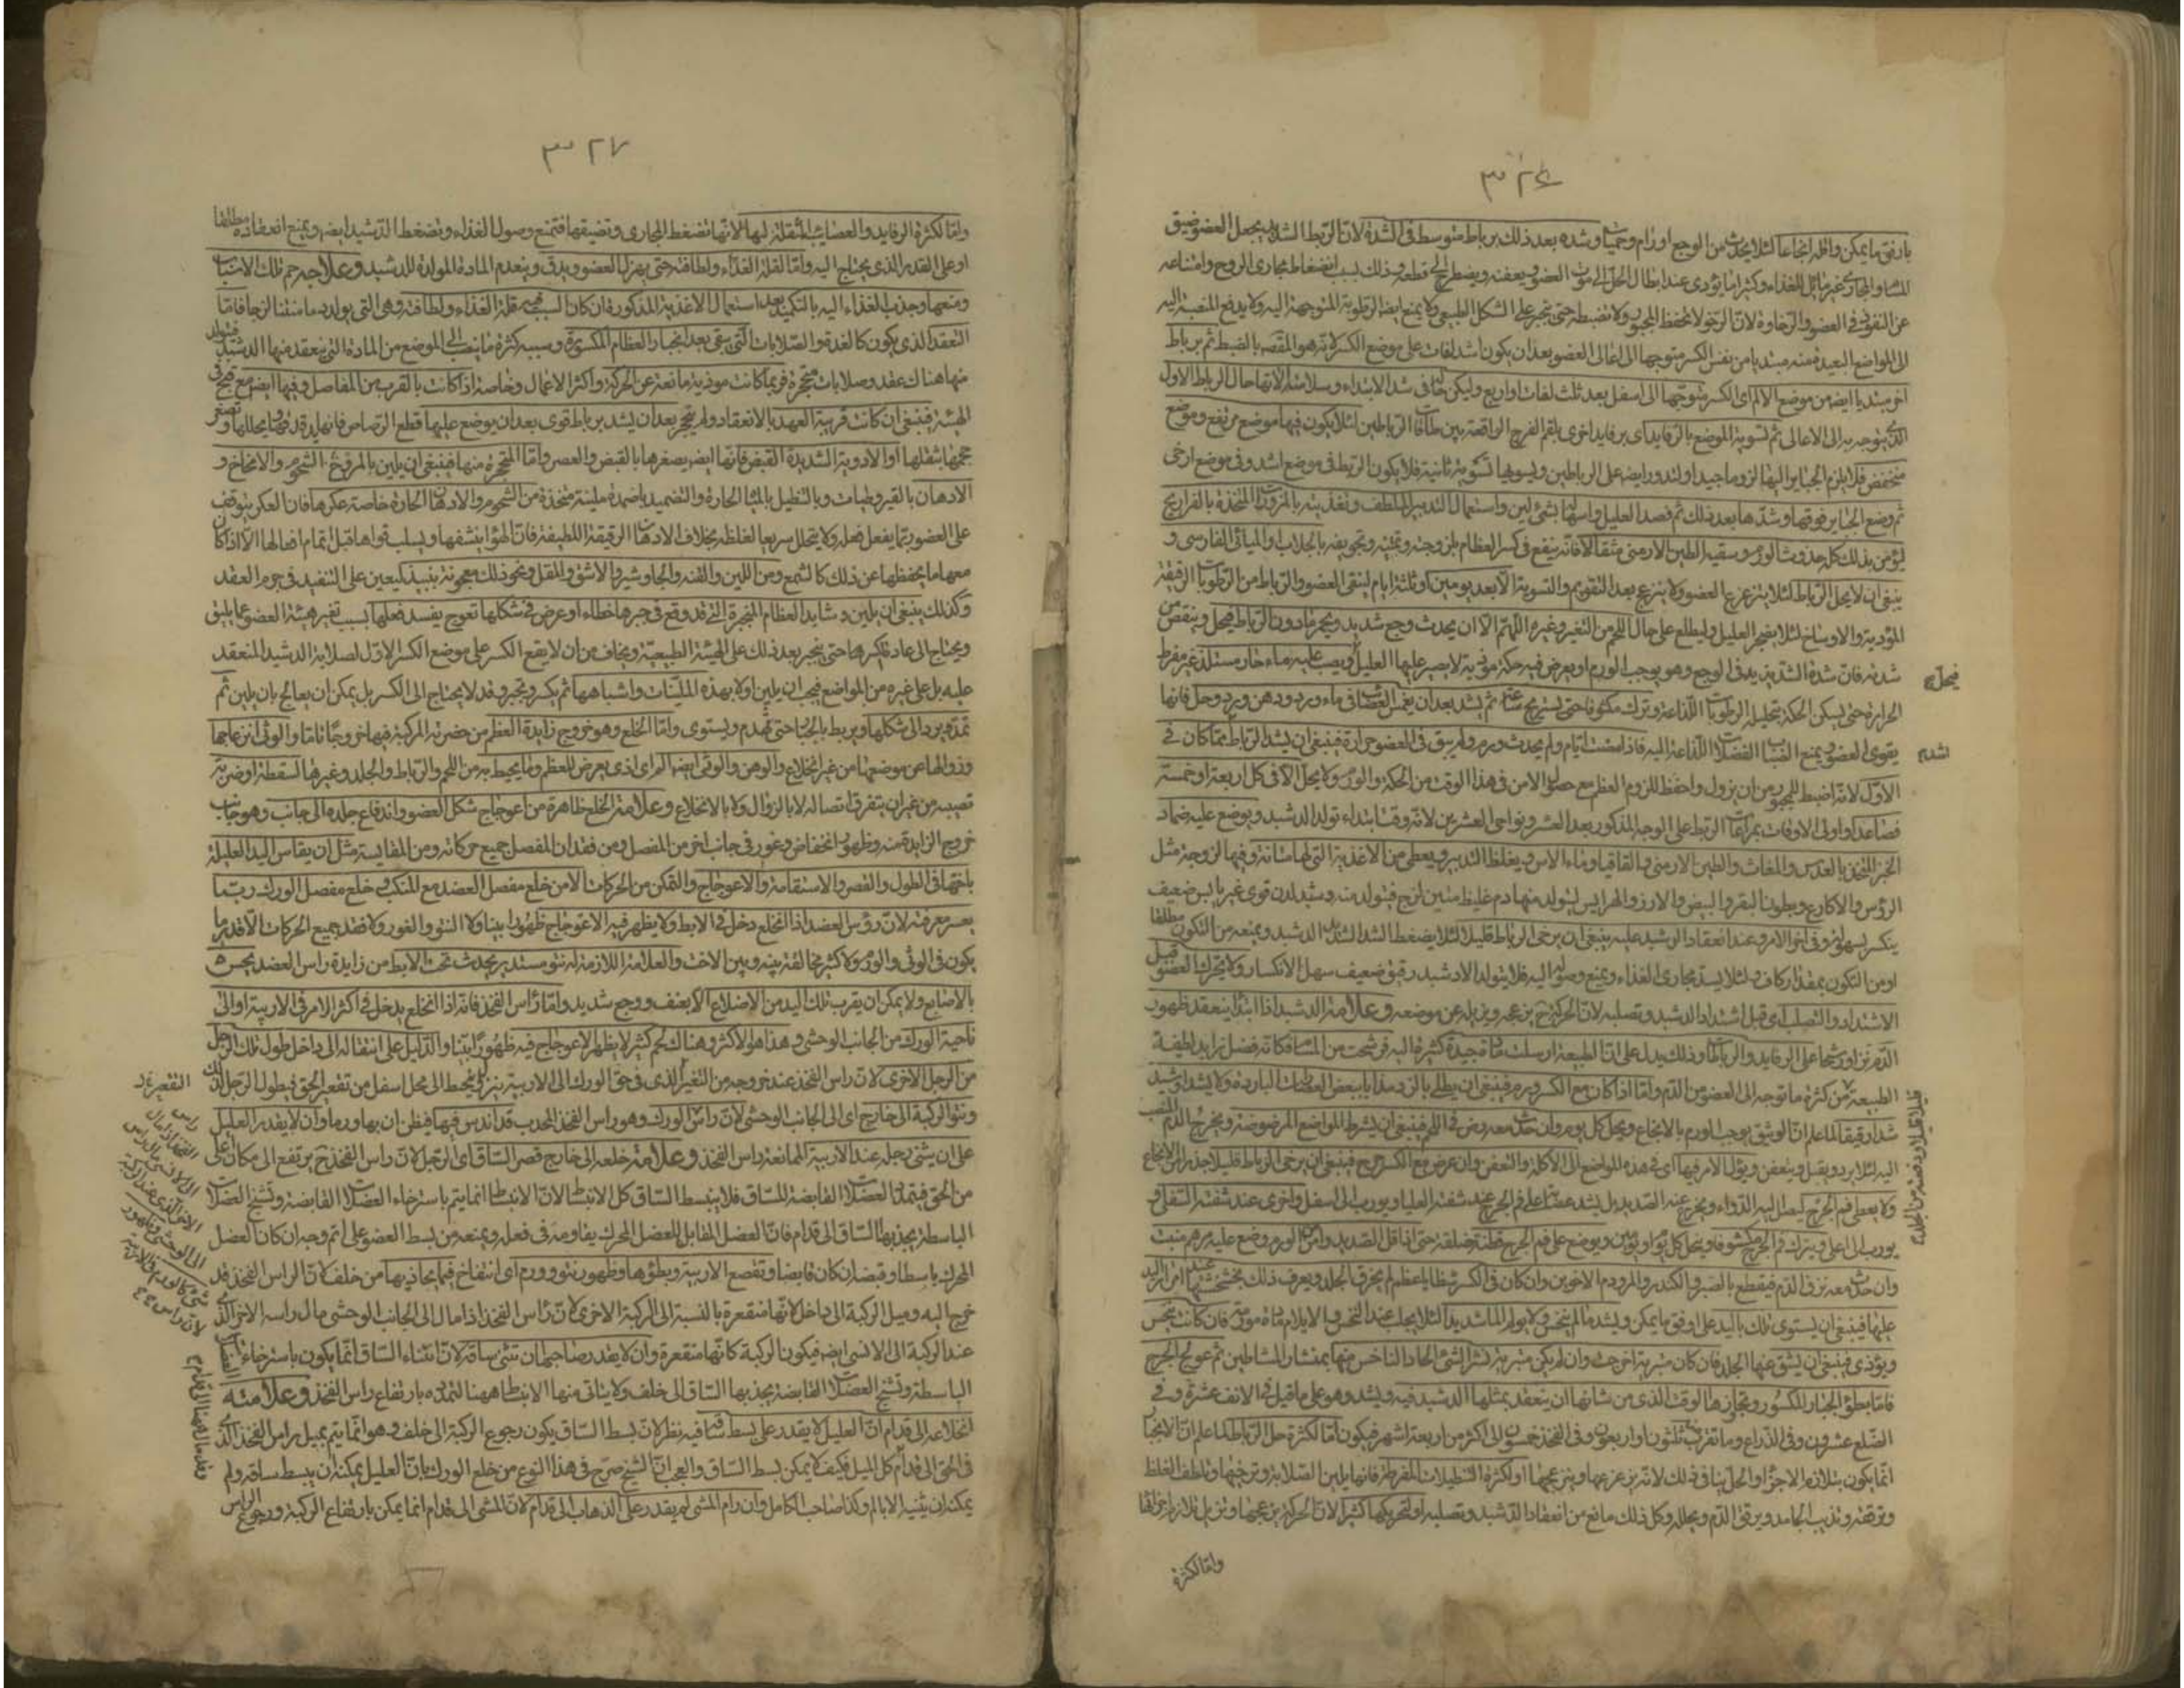 ٣٢٦
بارفق ما يمكن واقله ايجاعا لئلا يحدث من الوجع اورام وحميات وشده بعد ذلك برباط متوسط فى الشدة لان الربط الشديد يجعل العضو ضيق
المسام والمجارى غير قابل للغذاء وكثيرا ما يؤدى عند ابطال الحل الى موت العضو ويعفنه ويضطر الى قطعه وذلك بسبب انضغاط مجارى الروح وامتناعه
عن النفوذ فى العضو والرخاوة لان الرخو لا يحفظ المجبور ولا تضبطه حتى تجبر على الشكل الطبيعى ولا يمنع ايضا الرطوبة المتوجهة اليه ولا يدفع المنصبة اليه
الى المواضع البعيدة منه مبتديا من نفس الكسر متوجها الى اعالى العضو بعد ان يكون اشد لفات على موضع الكسر لانه هو المقصود بالضبط ثم برباط
اخر مبتديا ايضا من موضع الالم اى الكسر متوجها الى اسفل بعد ثلث لفات او اربع وليكن حالها فى شد الابتداء وسلامته الانتهاء حال الرباط الاول
الذى يتوجه به الى الاعالى ثم تسوية الموضع بالرفايد اى برفايد اخرى يلقم الفرج الواقعة بين طاقات الرباطين لئلا يكون فيها موضع مرتفع وموضع
منخفض فلا يلزم الجباير اليها لزوما جيدا ولتدور ايضا على الرباطين ويسويها تسوية ثانية فلا يكون الربط فى موضع اشد وفى موضع ارخى
ثم وضع الجباير فوقها وشدها بعد ذلك ثم فصد العليل واسهاله بشئ لين واستعمال التدبير الملطف وتغذيته بالمزورات المتخذة بالفراريج
ليؤمن بذلك كله حدوث الورم وسقيه الطين الارمنى مثقالا فانه ينفع فى كسر العظام بلزوجته وتجفيفه بالجلاب او الميائى الفارسى و
ينبغى ان لا يحل الرباط لئلا يتزعزع العضو ولا ينزع بعد التقويم والتسوية الا بعد يومين او ثلثة ايام لينقى العضو والرباط من الرطوبات الرقيقة
المؤذية والاوساخ لئلا يضجر العليل وليطلع على حال اللحم من التغير وغيره اللهم الا ان يحدث وجع شديد ويحمر مادون الرباط فيحل وينقص من
شدته فان شدة الشد تزيد فى الوجع وهو يوجب الورم او يعرض فيه حكة مؤذية لا يصبر عليها العليل ويصب عليه ماء حار مستلذ غير مفرط
الحرارة حتى يسكن الحكة بتحليل الرطوبات اللذاعة وترك مكشوفا حتى يستريح ساعة ثم يشد بعد ان يغمس العصائب فى ماء ورد ودهن ورد وخل فانها
يقوى العضو ويمنع انصباب الفضلات اللذاعة اليه فاذا مضت ايام ولم يحدث ورم ولم يبق فى العضو حرارة فينبغى ان يشد الرباط مما كان فى
الاول لانه اضبط للمجبور من ان يزول واحفظ للزوم العظم مع حصول الامن فى هذا الوقت من الحكة والورم ولا يحل الا فى كل اربعة او خمسة
فصاعدا واولى الاوقات بمراعاة الربط على الوجه المذكور بعد العشر ونواحى العشرين لانه وقت ابتداء تولد الدشبد ويوضع عليه ضماد
الجبر المتخذ بالعدس والمغاث والطين الارمنى والقاقيا وماء الاس ويغلظ التدبير ويعطى من الاغذية التى لها متانة وفيها لزوجة مثل
الرؤس والاكارع وبطون البقر والبيض والارز والهرايس ليتولد منها دم غليظ متين لزج فيتولد منه دشبد لدن قوى غير يابس ضعيف
ينكسر بسهولة وفى اخر الامر وعند انعقاد الدشبد عليه ينبغى ان يرخى الرباط قليلا لئلا يضغط الشد الشديد الدشبد ويمنعه من التكون مطلقا
او من التكون بمقدار كاف ولئلا يسد مجارى الغذاء ويمنع وصوله اليه فلا يتولد الا دشبد رقيق ضعيف سهل الانكسار ولا يتحرك العضو قبل
الاشتداد والتصلب اى قبل اشتداد الدشبد وتصلبه لان الحركة ح يزعجه ويزيله عن موضعه وعلامة الدشبد اذا ابتدا ينعقد ظهور
الدم نزا ورشحا على الرفايد والرباطات وذلك يدل على ان الطبيعة ارسلت مادة جيدة كثيرة اليه فرشحت من المسام فكانه فضل تزايد لطيفة
الطبيعة من كثرة ما توجه الى العضو من الدم واما اذا كان مع الكسر ورم فينبغى ان يطلى بالردمذا يا ببعض العطلات الباردة ولا يشد او يشد
شدا رقيقا لما علم ان الوثيق يوجب الورم بالايجاع ويحل كل يوم وان حدث معه رض فى اللحم فينبغى ان يشرط المواضع المرضوضة ويخرج الدم المنصب
اليه لئلا يرد ويقبل ويتعفن ويؤل الامر فيها اى فى هذه المواضع الى الآكلة والتعفن وان عرض مع الكسر جرح فينبغى ان يرخى الرباط قليلا حذرا من الايجاع
ولا يغطى فم الجرح ليصل اليه الدواء ويخرج عنه الصديد بل يشد عصابة على فم الجرح عند شفته العليا ويورب الى اسفل واخرى عند شفته السفلى و
يورب الى اعلى ويترك فم الجرح مكشوفا ويحل كل يوم او يومين ويوضع على فم الجرح قطنة خلقة حتى اذا قل الصديد وامن الورم وضع عليه مرهم منبت
وان حدث معه نزف الدم فيقطع بالصبر والكندر والمر ودم الاخوين وان كان فى الكسر شظايا عظم لم يخرق الجلد ويعرف ذلك بخشخشتها عند امرار اليد
عليها فينبغى ان يستوى تلك باليد على اوفق ما يمكن ويشد ما لم ينخس ولا يولم الما شديدا لئلا يجلب عند النخس والايلام مادة مورمة فان كانت ينخس
ويؤذى فينبغى ان يشق عنها الجلد فان كان متبرية اخرجت وان لم يكن متبرية نشر الشئ الحاد الناخس منها بمنشار المشاطين ثم عولج الجرح
فاما بطؤ انجبار المكسور وتجاوزها الوقت الذى من شانها ان ينعقد بمثلها الدشبد فيه ويشد وهو على ما قيل فى الانف عشرة وفى
الضلع عشرون وفى الذراع وما تقرب ثلثون او اربعون وفى الفخذ خمسون الى اكثر من اربعة اشهر فيكون اما لكثرة حل الرباط لما علم ان الانجبار
انما يكون بتلازم الاجزاء والحل ينافى ذلك لانه يزعزعها ويزعجها او لكثرة التنطيلات المفرطة فانها يلين الصلابة وترخيها وتلطف الغلظ
وترققه وتذيب الجامد ويرقق الدم ويحلله وكل ذلك مانع من انعقاد الدشبد وتصلبه او لتحريكها كثيرا لان الحركة يزعجها وتزيل تلازم اجزائها
واما لكثرة
فيحل ح
اشد
٣٢٧
واما لكثرة الرفايد والعصايب المثقلة لها لانها تضغط المجارى وتضيقها فتمنع وصول الغذاء وتضغط الدشبد ايضا ويمنع انعقاده مطلقا
او على القدر الذى يحتاج اليه واما لقلة الغذاء ولطافته حتى يهزل العضو ويدق وينعدم المادة المولدة للدشبد وعلاجه حسم تلك الاسباب
ومنعها وجذب الغذاء اليه بالتكميد بعد استعمال الاغذية المذكورة فان كان السبب فيه قلة الغذاء ولطافته وهى التى يولد دما متينا لزجا فاما
التعقد الذى يكون كالغدة والصلابات التى يبقى بعد انجبار العظام المكسورة وسببه كثرة ما ينصب الى الموضع من المادة التى ينعقد منها الدشبد فيتولد
منها هناك عقد وصلابات متحجرة فربما كانت موذية مانعة عن الحركة واكثر الاعمال وخاصة اذا كانت بالقرب من المفاصل وفيها ايضا مع قبح فى
الهيئة فينبغى ان كانت قريبة العهد بالانعقاد ولم يتحجر بعد ان يشد برباط قوى بعد ان يوضع عليها قطع الرصاص فانها يدقها ويحللها وتصغر
حجمها بثقلها او الادوية الشديدة القبض فانها ايضا يصغرها بالقبض والعصر واما المتحجرة منها فينبغى ان يلين بالمروخ الشحوم والامخاخ و
الادهان بالقيروطيات وبالتنطيل بالمياه الحارة والتضميد باضمدة ملينة متخذة من الشحوم والادهان الحارة خاصة عكرها فان العكر يتوقف
على العضو ريثما يفعل فعله ولا يتحلل سريعا لغلظه بخلاف الادهان الرقيقة اللطيفة فان الهواء ينشفها ويسلب قواها قبل تمام افعالها الا اذا كان
معها ما يحفظها عن ذلك كالشمع ومن اللبن والقنه والجاوشير والاشق والمقل ونحو ذلك معجونة بنبيذ ليعين على التنفيذ فى جرم العقد
وكذلك ينبغى ان يلين دشابد العظام المنجبرة التى قد وقع فى جبرها خطاء او عرض فى شكلها تعوج يفسد فعلها بسبب تغير هيئة العضو عما يليق
ويحتاج الى اعادة كسرها حتى ينجبر بعد ذلك على الهيئة الطبيعية ويخاف من ان لا يقع الكسر على موضع الكسر الاول لصلابة الدشبد المنعقد
عليه بل على غيره من المواضع فيجب ان يلين اولا بهذه الملينات واشباهها ثم يكسر ويجبر وقد لا يحتاج الى الكسر بل يمكن ان يعالج بان يلين ثم
تمد ويرد الى شكلها ويربط بالجباير حتى ينهدم ويستوى واما الخلع وهو خروج زايدة العظم من حضرته المركبة فيها خروجا تاما والوثى انزعاجها
وزوالها عن موضعها من غير انخلاع والوهن والوثى ايضا الم اى اذى يعرض للعظم وما يحيط به من اللحم والرباط والجلد وغيرها لسقطة او ضربة
تصيبه من غير ان يتفرق اتصاله لا بالزوال ولا بالانخلاع وعلامة الخلع ظاهرة من اعوجاج شكل العضو واندفاع جلده الى جانب وهو جانب
خروج الزايدة منه وظهور انخفاض وغور فى جانب اخر من المفصل ومن فقدان المفصل جميع حركاته ومن المقايسة مثل ان يقاس اليد العليلة
باختها فى الطول والقصر والاستقامة والاعوجاج والتمكن من الحركات الا من خلع مفصل العضد مع المنكب وفى خلع مفصل الورك ربما
يعسر معرفته لان رؤس العضد اذا انخلع دخل فى الابط ولا يظهر فيه الاعوجاج ظهورا بينا ولا النتو والغور ولا فقد جميع الحركات الا قدر ما
يكون فى الوثى والورم ولا كثير مخالفة بينه وبين الاخت والعلامة اللازمة له نتو مستدير يحدث تحت الابط من زايدة راس العضد يحس
بالاصابع ولا يمكن ان يقرب تلك اليد من الاضلاع الا بعنف ووجع شديد واما راس الفخذ فانه اذا انخلع يدخل فى اكثر الامر فى الاربية او الى
ناحية الورك من الجانب الوحشى وهذا هو الاكثر وهناك لحم كثير لا يظهر الاعوجاج فيه ظهورا بينا والدليل على انتقاله الى داخل طول تلك الرجل
من الرجل الاخرى لان راس الفخذ عند خروجه من التقعير الذى فى حق الورك الى الاربية ينزل وينحط الى محل اسفل من تقعر الحق فيطول الرجل لذلك
ونتوا لركبة الى خارج اى الى الجانب الوحشى لان راس الورك وهو راس الفخذ المحدب قد اندس فيها فيظن ان بها ورما وان لا يقدر العليل
على ان يثنى رجله عند الاربية لممانعة راس الفخذ وعلامة خلعه الى خارج قصر الساق اى الرجل لان راس الفخذ ح يرتفع الى مكان اعلى
من الحق فيتمدد العضلات القابضة للساق فلا ينبسط الساق كل الانبساط لان الانبساط انما يتم باسترخاء العضلات القابضة وتشنج العضلات
الباسطة يجذبها الساق الى قدام فان العضل المقابل للعضل المحرك يقاومه فى فعله ويمنعه من بسط العضو على اتم وجه ان كان العضل
المحرك باسطا وقبضه ان كان قابضا وتقصع الاربية وبطؤها وظهور نتو وورم اى انتفاخ فيما يحاذيها من خلف لان الراس الفخذ قد
خرج اليه وميل الركبة الى داخل لانها منقعرة بالنسبة الى الركبة الاخرى لان راس الفخذ اذا مال الى الجانب الوحشى مال راسه الاخر الذى
عند الركبة الى الانسى ايضا فيكون الركبة كانها منقعرة وان لا يقدر صاحبها ان يثنى ساقه لان انثناء الساق انما يكون باسترخاء العضل
الباسطة وتشنج العضلات القابضة يجذبها الساق الى خلف ولا يتاتى منها الانبساط ههنا لتمدده بارتفاع راس الفخذ وعلامته
انخلاعه الى قدام ان العليل لا يقدر على بسط ساقه فيه نظر لان بسط الساق يكون رجوع الركبة الى خلف وهو انما يتم بميل راس الفخذ الذى
فى الحق الى قدام كل الميل فكيف لا يمكن بسط الساق والعجب ان الشيخ صرح فى هذا النوع من خلع الورك بان العليل يمكنه ان يبسط ساقه ولم
يمكن ان يثنيه الا بالم وكذا صاحب الكامل وان رام المشى لم يقدر على الذهاب الى قدام لان المشى الى قدام انما يمكن بارتفاع الركبة ورجوع الراس